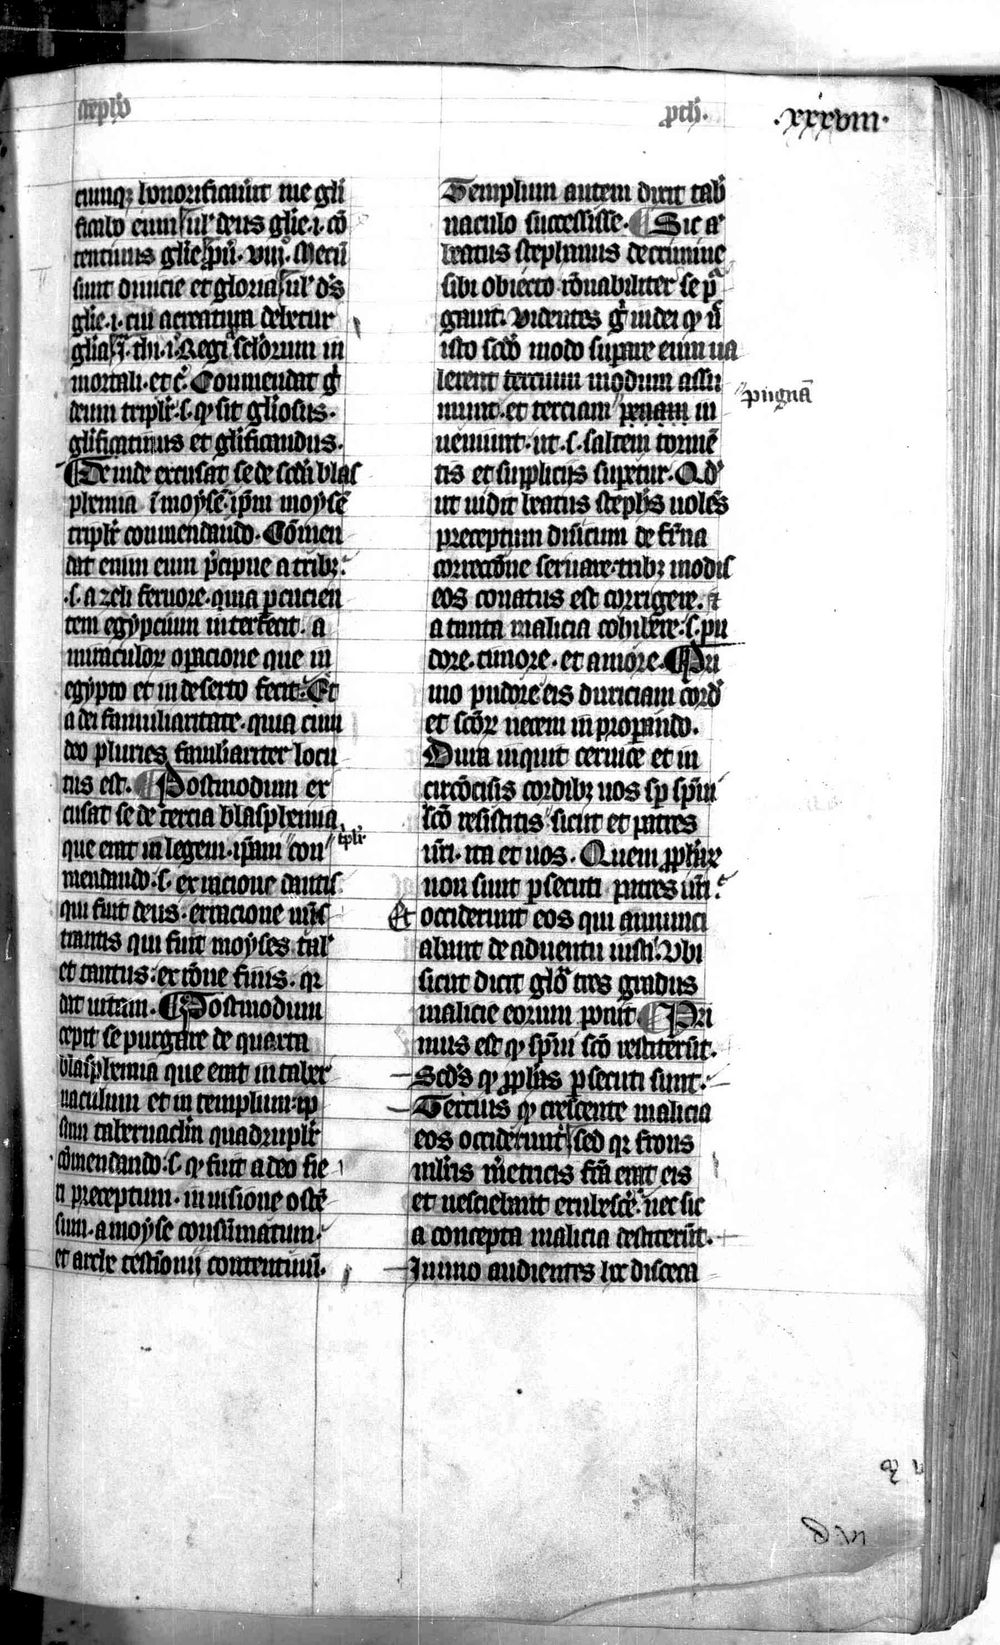 .xxxviii.
cumq; honorificauerit me gl'i
ficabo eum ul' deus gl'ie .i. co̅
tentiuus gl'ie pu̅. viij. Mecu̅
sunt diuicie et gloria ul' d'n̅s
gl'ie .i. cui a creatura debetur
gl'ia .i. thi. i. Regi sc̅lorum in
mortali . et c̅. Commendat g°
deum tripl'r .s. q sit gl'iosus .
gl'ificatiuus et gl'ificandus .
¶ Deinde excusat se de sc̅da blas
phemia i̅ moyse̅ . ip̅m moyse̅
tripl'r commendando . Co̅men
dat enim eum p̍cipue a trib; .
.s. a zeli feruore . quia p̱cucien
tem egypcium interfecit . a
miraculor' op̱acione que in
egypto et in deserto fecit . Et
a dei familiaritate . quia cum
deo pluries familiariter locu
tus est . ¶ Postmodum ex
cusat se de tercia blasphemia
que erat in legem . ip̅am " con " t̍pl'r
mendando .s. ex racione dantis
qui fuit deus . ex racione mi̅s
trantis qui fuit moyses tal'
et tantus . ex ro̅ne finis . qr
dat uitam . ¶ Postmodum
cepit se purgare de quarta
blasphemia que erat in taber
naculum et in templum . ip
sum tabernac̅lm quadrupl'r
co̅mendando .s. q fuit a deo fie
ri preceptum . in uisione oste̅
sum . a moyse consu̅matum .
et arche testi̅onij contentiuu̅ .
Templum autem dicit tab'
naculo successisse . ¶ Sic g°
beatus stephanus de crimine
sibi obiecto ro̅nabiliter se p̱
gauit . Videntes g° iudei q n̅
isto sc̅do modo sup̱are eum ua
lerent tercium modum assu
munt . et terciam " penam in " pugna̅
ueniunt . ut .s. saltem torme̅
tis et suppliciis sup̱etur . Qd'
ut uidit beatus steph̅s uole̅s
preceptum diuinum de fr̅na
correctio̅ne seruare . trib; modis
eos conatus est corrigere . et
a tanta malicia cohibere . s. pu
dore . timore . et amore . ¶ Pri
mo pudore eis duriciam cord'
et sc̅or' necem inp̱rop̱ando .
Dura inquit ceruice et in
circu̅cisis cordib; uos sp̱ sp̅ui
sc̅o resistitis sicut et patres
ur̅i . ita et uos . Quem p̱ph̅ar'
non sunt p̱secuti patres ur̅i .
Et occiderunt eos qui annunci
abant de aduentu iusti . Vbi
sicut dicit glo̅ tres gradus
malicie eorum ponit ¶ Pri
mus est q sp̅ui sc̅o restiteru̅t .
Sc̅d's q p̱ph̅as p̱secuti sunt .
Tercius q crescente malicia
eos occiderunt . sed qr frons
mul̍ris m̍etricis fc̅a erat eis
et nesciebant erubesc̍e . nec sic
a concepta malicia destiteru̅t .
Immo audientes hec disseca